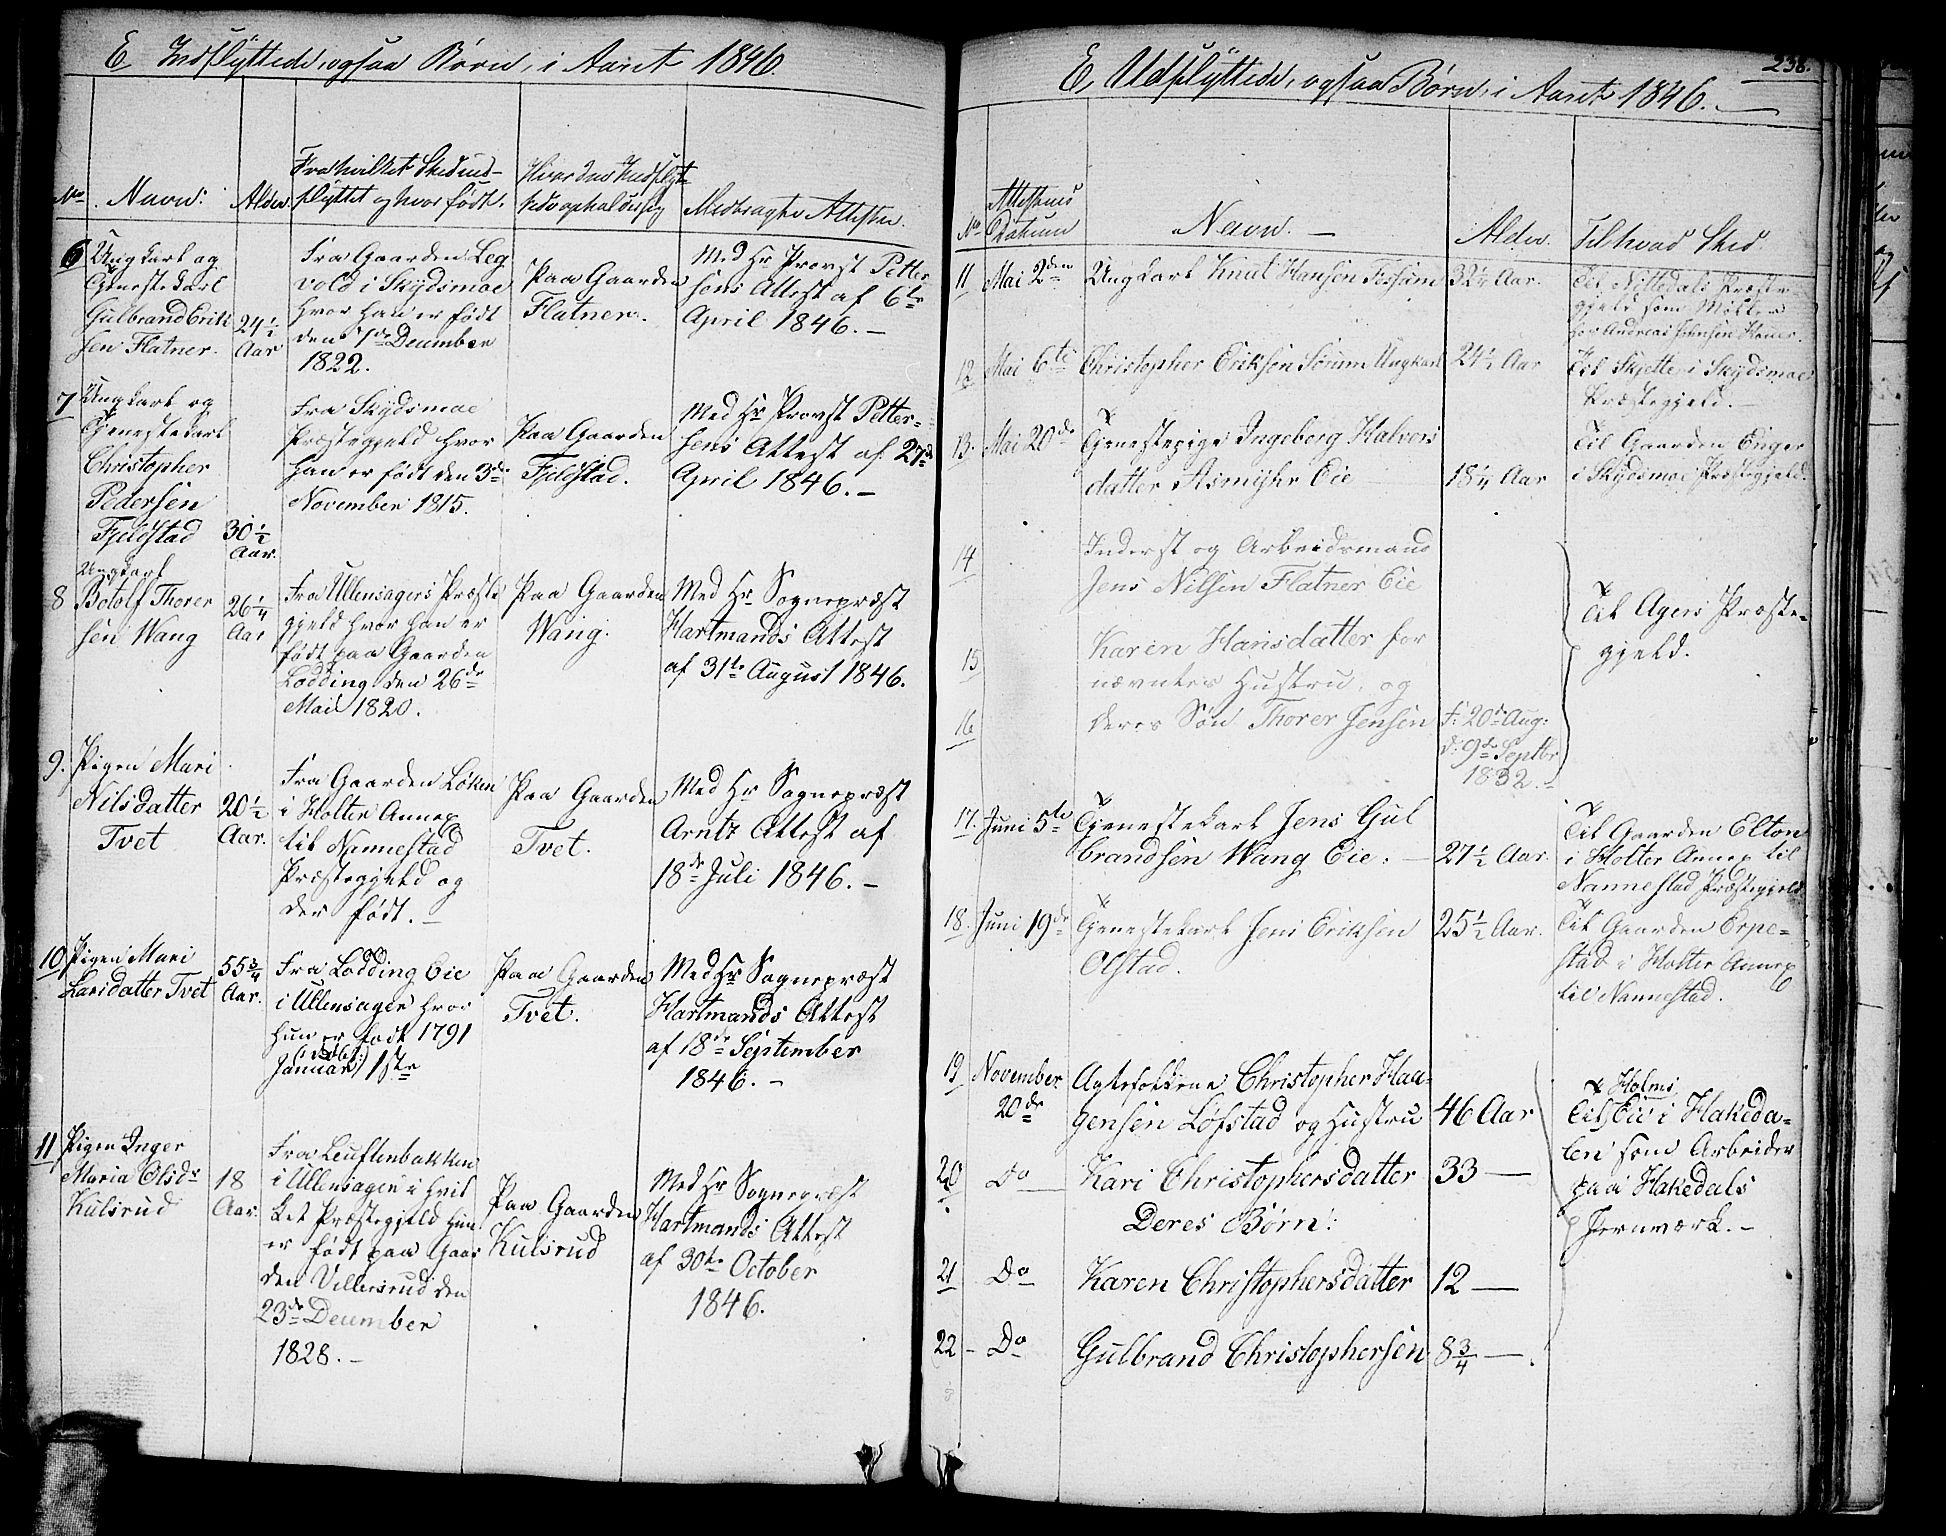 E Indflyttede, ogsaa Børn, i Aaret 1846.
No. Navn. Alder. Fra hvilket Sted ind-
flyttet og hvor født. Hvor den Indflyt-
tede opholder sig Medbragte Attester.
6 Ungkarl og
Tjenestekarl
Gulbrand Erik
sen Flatner.
24½
Aar
Fra Gaarden Leg
vold i Skydsmoe
hvor han er født
den 7de December
1822.
Paa Gaarden
Flatner.
Med Hr Provst Petter
sens Attest af 6te
April 1846. –
7 Ungkarl og
Tjenestekarl
Christopher
Pedersen
Fjeldstad
30½
Aar.
Fra Skydsmoe
Præstegjeld hvor
han er født den 3de
November 1815.
Paa Gaarden
Fjeldstad.
Med Hr Provst Petter-
sens Attest af 27de
April 1846. –
8 Ungkarl
Botolf Thorer
sen Wang
26¼
Aar
Fra Ullensagers Præste
gjeld hvor han er
født paa Gaarden
Lodding den 26de
Mai 1820.
Paa Gaarden
Wang.
Med Hr Sognepræst
Hartmands Attest
af 31te August 1846.
9. Pigen Mari
Nilsdatter
Tvet
20½
Aar.
Fra Gaarden Løken
i Holter Annex
til Nannestad
Præstegjeld og
der født. –
Paa Gaarden
Tvet.
Med Hr Sognepræst
Arntz Attest af
18de Juli 1846. –
10 Pigen Mari
Larsdatter Tvet
55¾
Aar.
Fra Lodding Eie
i Ullensager hvor
hun er født 1791
Januar 1ste
Paa Gaarden
Tvet.
Med Hr Sognepræst
Hartmands Attest
af 18de September
1846. –
11 Pigen Inger
Maria Olsdr
Kulsrud
18
Aar.
Fra Leuftenbakken
i Ullensager i hvil
ket Præstegjeld hun
er født paa Gaar
den Villersrud den
23de December
1828. –
Paa Gaarden
Kulsrud
Med Hr Sognepræst
Hartmands Attest
af 30te October
1846.
238.
E, Udflyttede, ogsaa Børn, i Aaret 1846. –
No Attestens
Datum Navn. – Alder. Til hvad Sted
11 Mai 2den Ungkarl Knut Hansen Fossum 32¼ Aar. Til Nittedals Præste-
gjeld som Møller
hos Andreas Johnsen Haner.
12 Mai 6te Christopher Eriksen Sørum Ungkarl 24½ Aar Til Skjetten i Skydsmoe
Præstegjeld. –
13. Mai 20de Tjenestepige Ingeborg Halvors
datter Asmyhr Eie 18¼ Aar
Til Gaarden Enger
i Skydsmoe Præstegjeld.
14 Inderst og Arbeidsmand
Jens Nilsen Flatner Eie
15 Karen Hansdatter for
nævntes Hustru, og
16 deres Søn Thorer Jensen f: 20de Aug:
d: 9de Septbr
1832. –
Til Agers Præste-
gjeld.
17. Juni 5te Tjenestekarl Jens Gul
brandsen Wang Eie. – 27½ Aar.
Til Gaarden Elton
i Holter Annex til
Nannestad Præstegjeld
18. Juni 19de Tjenestekarl Jens Eriksen
Olstad.
25½ Aar.
Til Gaarden Erpe-
stad i Holter Annex
til Nannestad.
19 November
20de
Ægtefolkene Christopher Haa-
gensen Løfstad og Hustru 46 Aar
20 Do Kari Christophersdatter 33 —
Deres Børn:
21 Do Karen Christophersdatter 12 —
22 – Do Gulbrand Christophersen 8¾ —.
Holms
Til Eie i Hakeda-
len som Arbeider
paa Hakedals
Jernværk. –